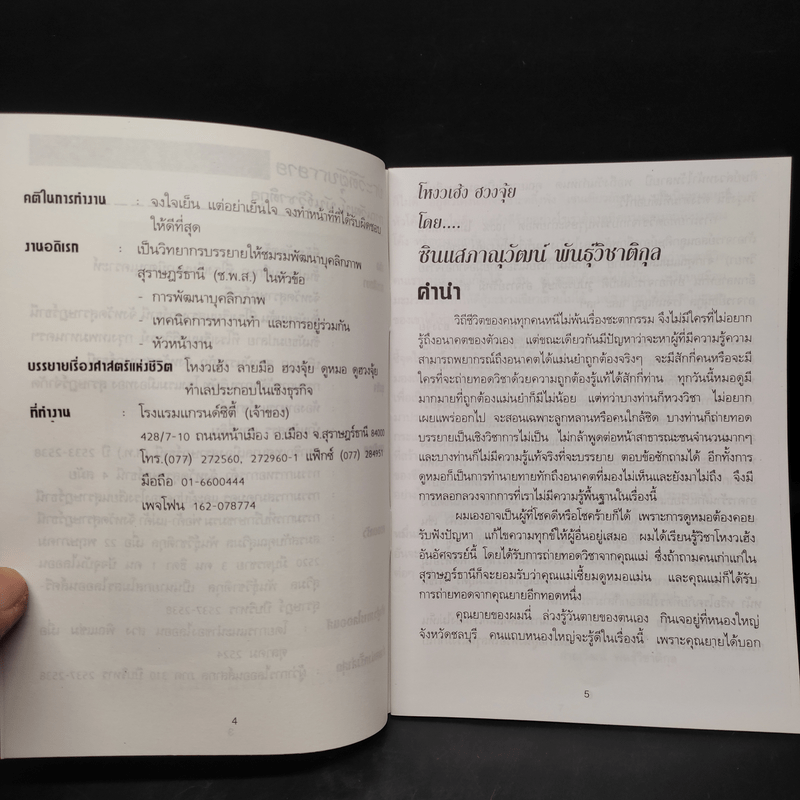 คติในการทำงาน : จงใจเย็น แต่อย่าเย็นใจ จงทำหน้าที่ที่ได้รับผิดชอบ
ให้ดีที่สุด
งานอดิเรก : เป็นวิทยากรบรรยายให้ชมรมพัฒนาบุคลิกภาพ
สุราษฎร์ธานี (ช.พ.ส.) ในหัวข้อ
- การพัฒนาบุคลิกภาพ
- เทคนิคการหางานทำ และการอยู่ร่วมกัน
- หัวหน้างาน
บรรยายเรื่องศาสตร์แห่งชีวิต โหงวเฮ้ง ลายมือ ฮวงจุ้ย ดูหมอ ดูฮวงจุ้ย
ทำเลประกอบในเชิงธุรกิจ
ที่ทำงาน : โรงแรมแกรนด์ซิตี้ (เจ้าของ)
428/7-10 ถนนหน้าเมือง อ.เมือง จ.สุราษฎร์ธานี 84000
โทร.(077) 272560, 272960-1 แฟ็กซ์ (077) 284951
มือถือ 01-6600444
เพจโฟน 162-078774
4
โหงวเฮ้ง ฮวงจุ้ย
โดย....
ซินแสภาณุวัฒน์ พันธุ์วิชาติกุล
คำนำ
วิถีชีวิตของคนทุกคนหนีไม่พ้นเรื่องชะตากรรม จึงไม่มีใครที่ไม่อยาก
รู้ถึงอนาคตของตัวเอง แต่ขณะเดียวกันมีปัญหาว่าจะหาผู้ที่มีความรู้ความ
สามารถพยากรณ์ถึงอนาคตได้แม่นยำถูกต้องจริงๆ จะมีสักกี่คนหรือจะมี
ใครที่จะถ่ายทอดวิชาด้วยความถูกต้องรู้แท้ได้สักกี่ท่าน ทุกวันนี้หมอดูมี
มากมายที่ถูกต้องแม่นยำก็มีไม่น้อย แต่ทว่าบางท่านก็หวงวิชา ไม่อยาก
เผยแพร่ออกไป จะสอนเฉพาะลูกหลานหรือคนใกล้ชิด บางท่านก็ถ่ายทอด
บรรยายเป็นเชิงวิชาการไม่เป็น ไม่กล้าพูดต่อหน้าสาธารณะชนจำนวนมากๆ
และบางท่านก็ไม่มีความรู้แท้จริงที่จะบรรยาย ตอบข้อซักถามได้ อีกทั้งการ
ดูหมอก็เป็นการทำนายทายทักถึงอนาคตที่มองไม่เห็นและยังมาไม่ถึง จึงมี
การหลอกลวงจากการที่เราไม่มีความรู้พื้นฐานในเรื่องนี้
ผมเองอาจเป็นผู้ที่โชคดีหรือโชคร้ายก็ได้ เพราะการดูหมอต้องคอย
รับฟังปัญหา แก้ไขความทุกข์ให้ผู้อื่นอยู่เสมอ ผมได้เรียนรู้วิชาโหงวเฮ้ง
อันอัศจรรย์นี้ โดยได้รับการถ่ายทอดวิชาจากคุณแม่ ซึ่งถ้าถามคนเก่าแก่ใน
สุราษฎร์ธานีก็จะยอมรับว่าคุณแม่เซี้ยมดูหมอแม่น และคุณแม่ก็ได้รับ
การถ่ายทอดจากคุณยายอีกทอดหนึ่ง
คุณยายของผมนี่ ล่วงรู้วันตายของตนเอง กินเจอยู่ที่หนองใหญ่
จังหวัดชลบุรี คนแถบหนองใหญ่จะรู้ดีในเรื่องนี้ เพราะคุณยายได้บอก
5